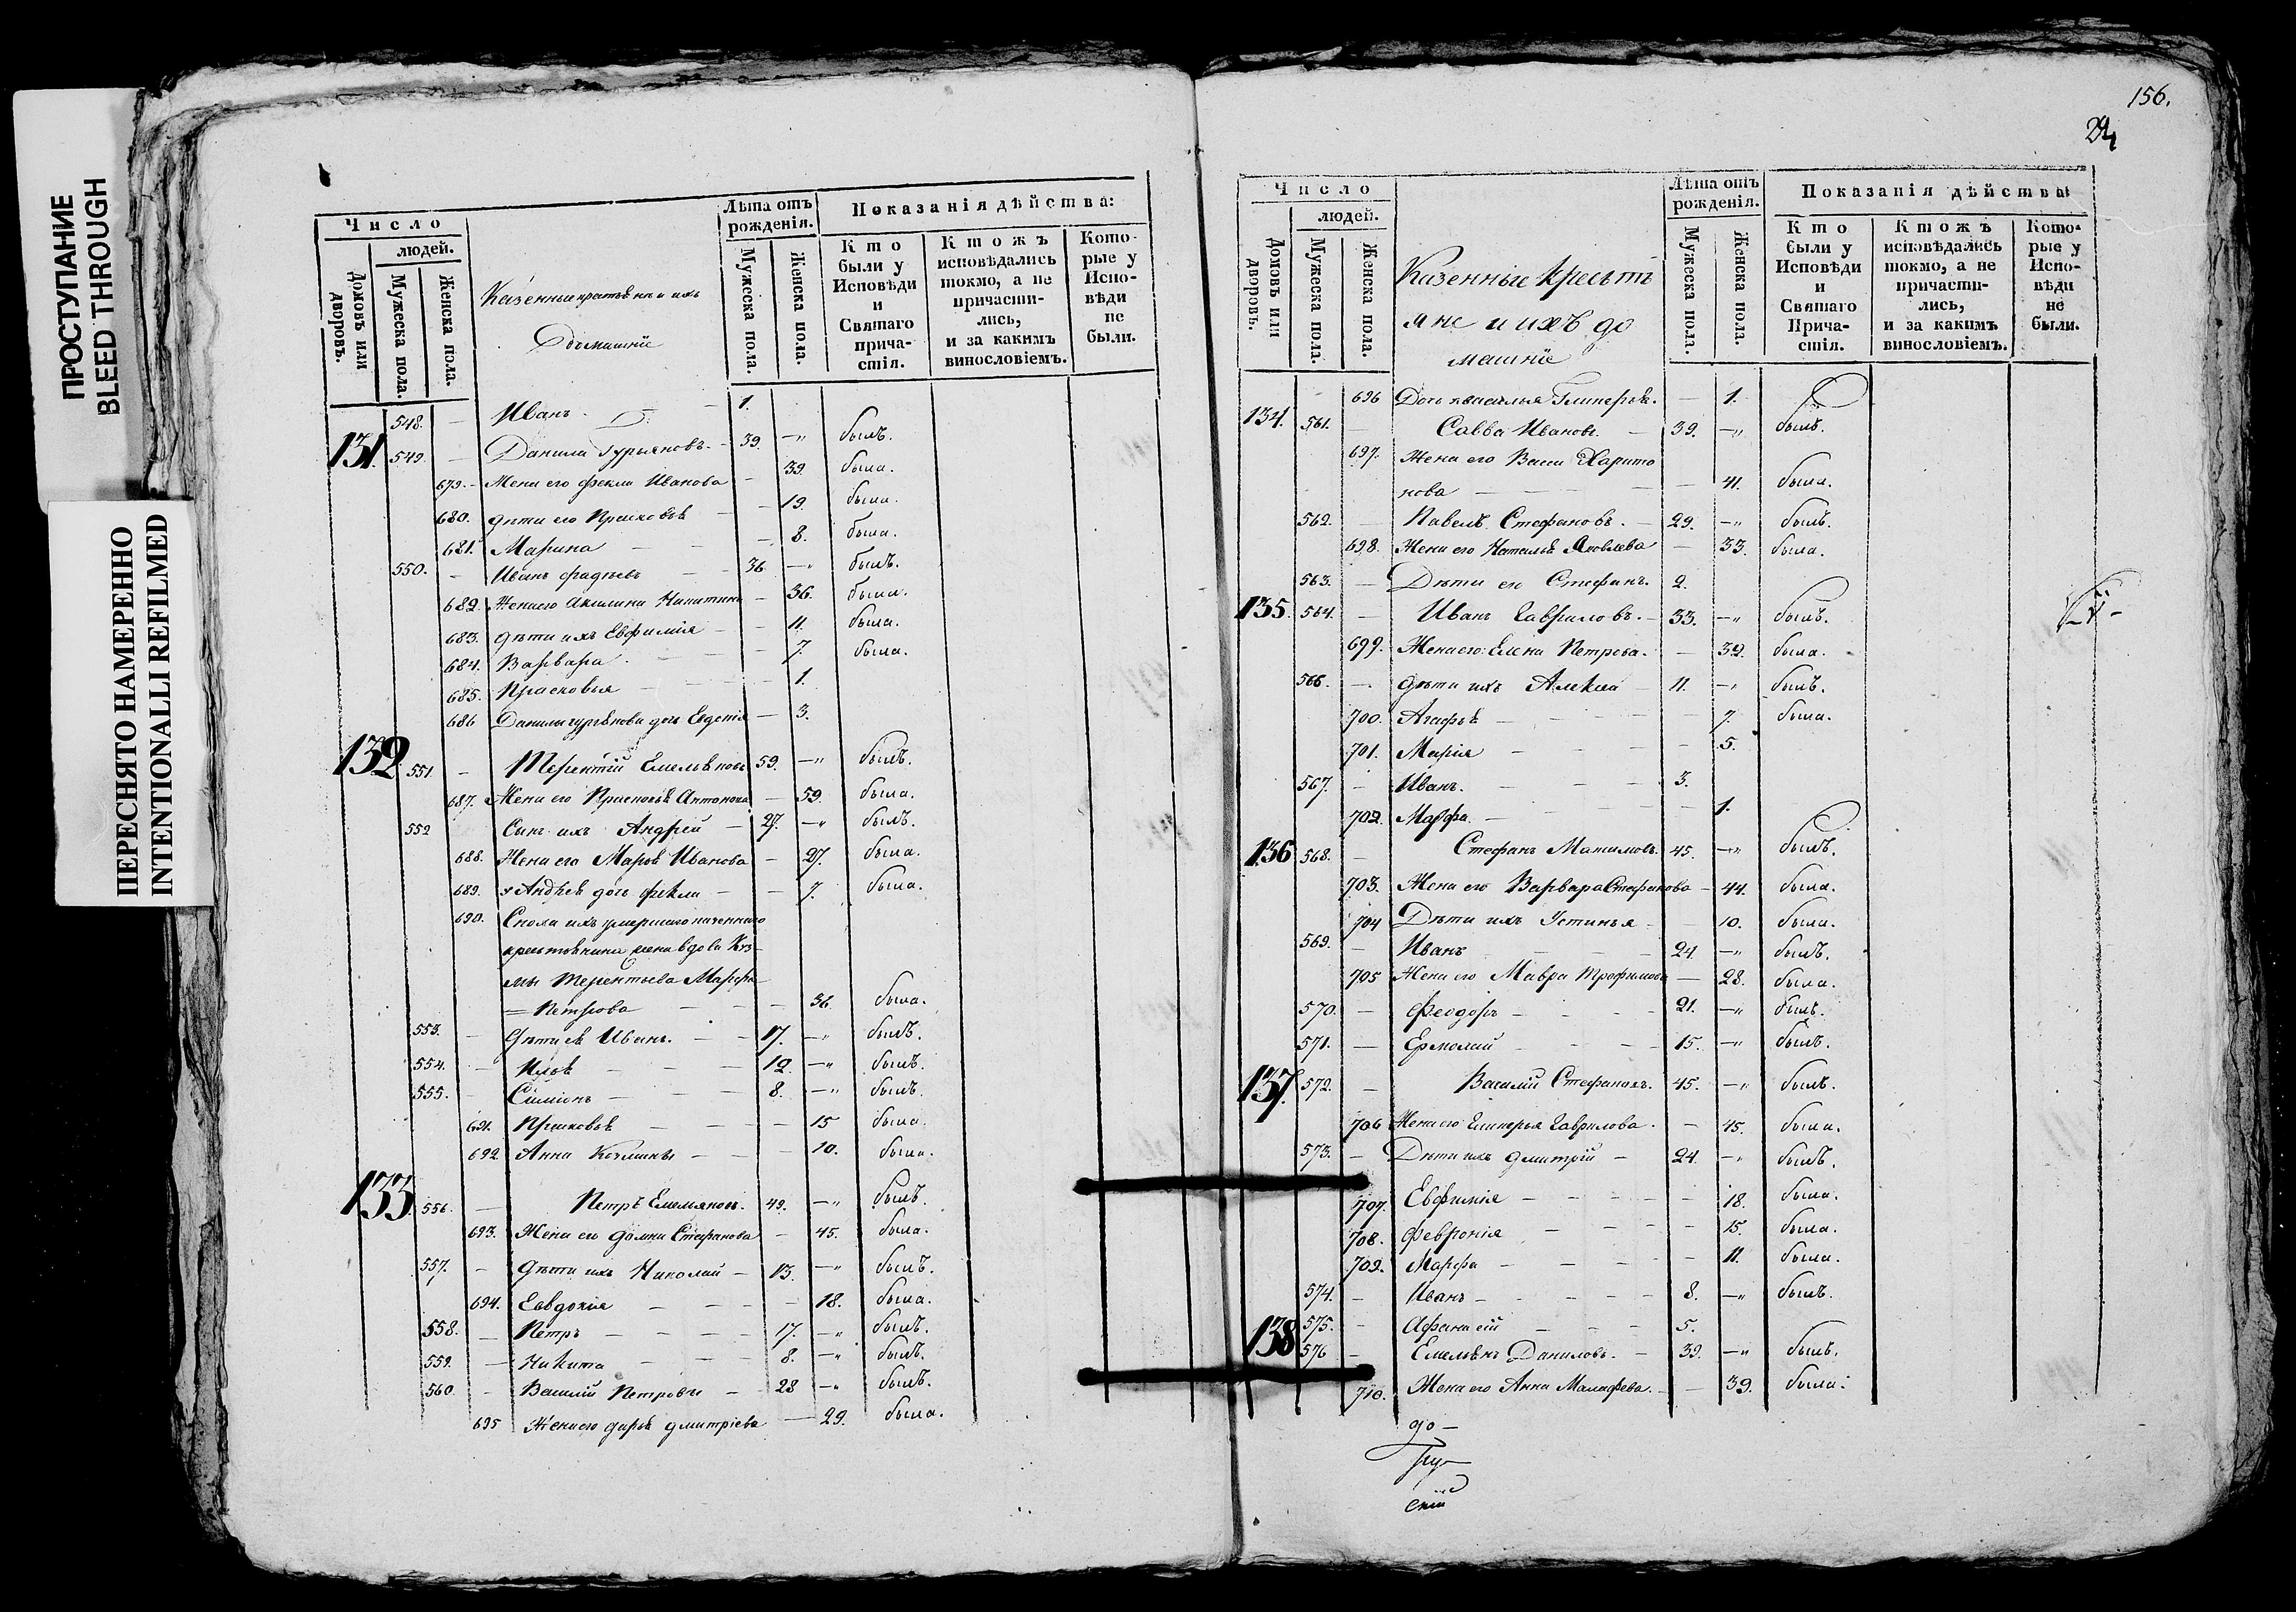 ПРОСТУПАНИЕ
BLEED THROUGH
ПЕРЕСНЯТО НАМЕРЕННО
INTENTIONALLI REFILMED
Число
людей.
Домовъ или дворовъ.
Мужеска пола.
Женска пола.
Домашніе
Лѣта отъ рожденія.
Мужеска пола.
Женска пола.
Показанія дѣйства:
Кто были у Исповѣди и Святаго причастія.
Ктожъ исповѣдались токмо, а не причастились, и за какимъ винословіемъ.
Которые у Исповѣди не были.
548. — Иванъ. — 1.
131. 549. — Данила Гурьяновъ. — 39. —„ былъ.
679. — Жена его Фекла Иванова — 39. была.
680. Дѣти его Прасковья — 19. была.
681. Марина — — 8. была.
550. — Иванъ Фадѣевъ — 36. —„ былъ.
682. Жена его Акилина Никитина — 36. была.
683. Дѣти ихъ Евфимія — — 11. была.
684. Варвара. — — 7. была.
685. Прасковья — — 1.
686 Данилы Гурьянова дочь Евгенія — 3.
132 551. — Терентій Емельяновъ 59. —„ былъ.
687. Жена его Прасковья Антонова — 59. была.
552 Сынъ ихъ Андрей — 27. —„ былъ.
688. Жена его Марья Иванова — 27. была.
689. Андрея дочь Фекла — — 7. была.
690.
Терентьева Марфа
= Петрова — — 36 была.
553. — Дѣти ея Иванъ. — 17. —„ былъ.
554. — — — 12. —„ былъ.
555. — Симіонъ — — 8. —„ былъ.
691. Прасковья — — 15 была.
692 Анна — — 10. была.
133 556. — Петръ Емельяновъ. 49. —„ былъ.
693. Жена его Домна Стефанова — 45. была.
557. — Дѣти ихъ Николай — 13. —„ былъ.
694. Евдокія — — 18. была.
558. — Петръ — — 17. —„ былъ.
559. — Никита — — 8. —„ былъ.
560. — Василій Петровъ — 28 —„ былъ.
695 Жена его Дарья Дмитріева — 29. была.
156.
24
Число
людей.
Домовъ или дворовъ.
Мужеска пола.
Женска пола.
Казенныe крестья
не и ихъ до
машніе
Лѣта отъ рожденія.
Мужеска пола.
Женска пола.
Показанія дѣйства:
Кто были у Исповѣди и Святаго Причастія.
Ктожъ исповѣдались токмо, а не причастились, и за какимъ винословіемъ.
Которые у Исповѣди не были.
696 Дочь — 1.
134. 561. — Савва Ивановъ. — 39. —„ былъ.
697. Жена его Васса Харито
нова — — 41. была.
562. — Павелъ Стефановъ. — 29. —„ былъ.
698. Жена его Наталья Яковлева — 33. была.
563. — Дѣти его Стефанъ. 2.
135 564. — Иванъ Гавриловъ. — 33. —„ былъ.
699. Жена его Елена Петрова. — 32. была.
566. — Дѣти ихъ Алексѣй 11. —„ былъ.
700. Агафья — — 7. была.
701. Марія — — 5.
567. — Иванъ. — — 3.
702. Марфа. — — 1.
136 568. — Стефанъ 45. —„ былъ.
703. Жена его Варвара Стефанова — 44. была.
704 Дѣти ихъ Устинья — 10. была.
569. — Иванъ — 24. —„ былъ.
705 Жена его Мавра Трофимова — 28. была.
570. — Феодоръ — — 21. —„ былъ.
571. — Ермолай — — 15. —„ былъ.
137. 572. — Василій Стефановъ. 45. —„ былъ.
706 Жена его Гликерья Гаврилова. — 45. была.
573. — Дѣти ихъ Дмитрій — 24. —„ былъ.
707. Евфимія — — 18. была.
708. Февронія — — 15. была.
709. Марфа — — 11. была.
574. — Иванъ — — 8. —„ былъ.
575. — Афанасій — — 5.
138 576 — Емельянъ Даниловъ. — 39. —„ былъ.
710. Жена его Анна — 39. была.